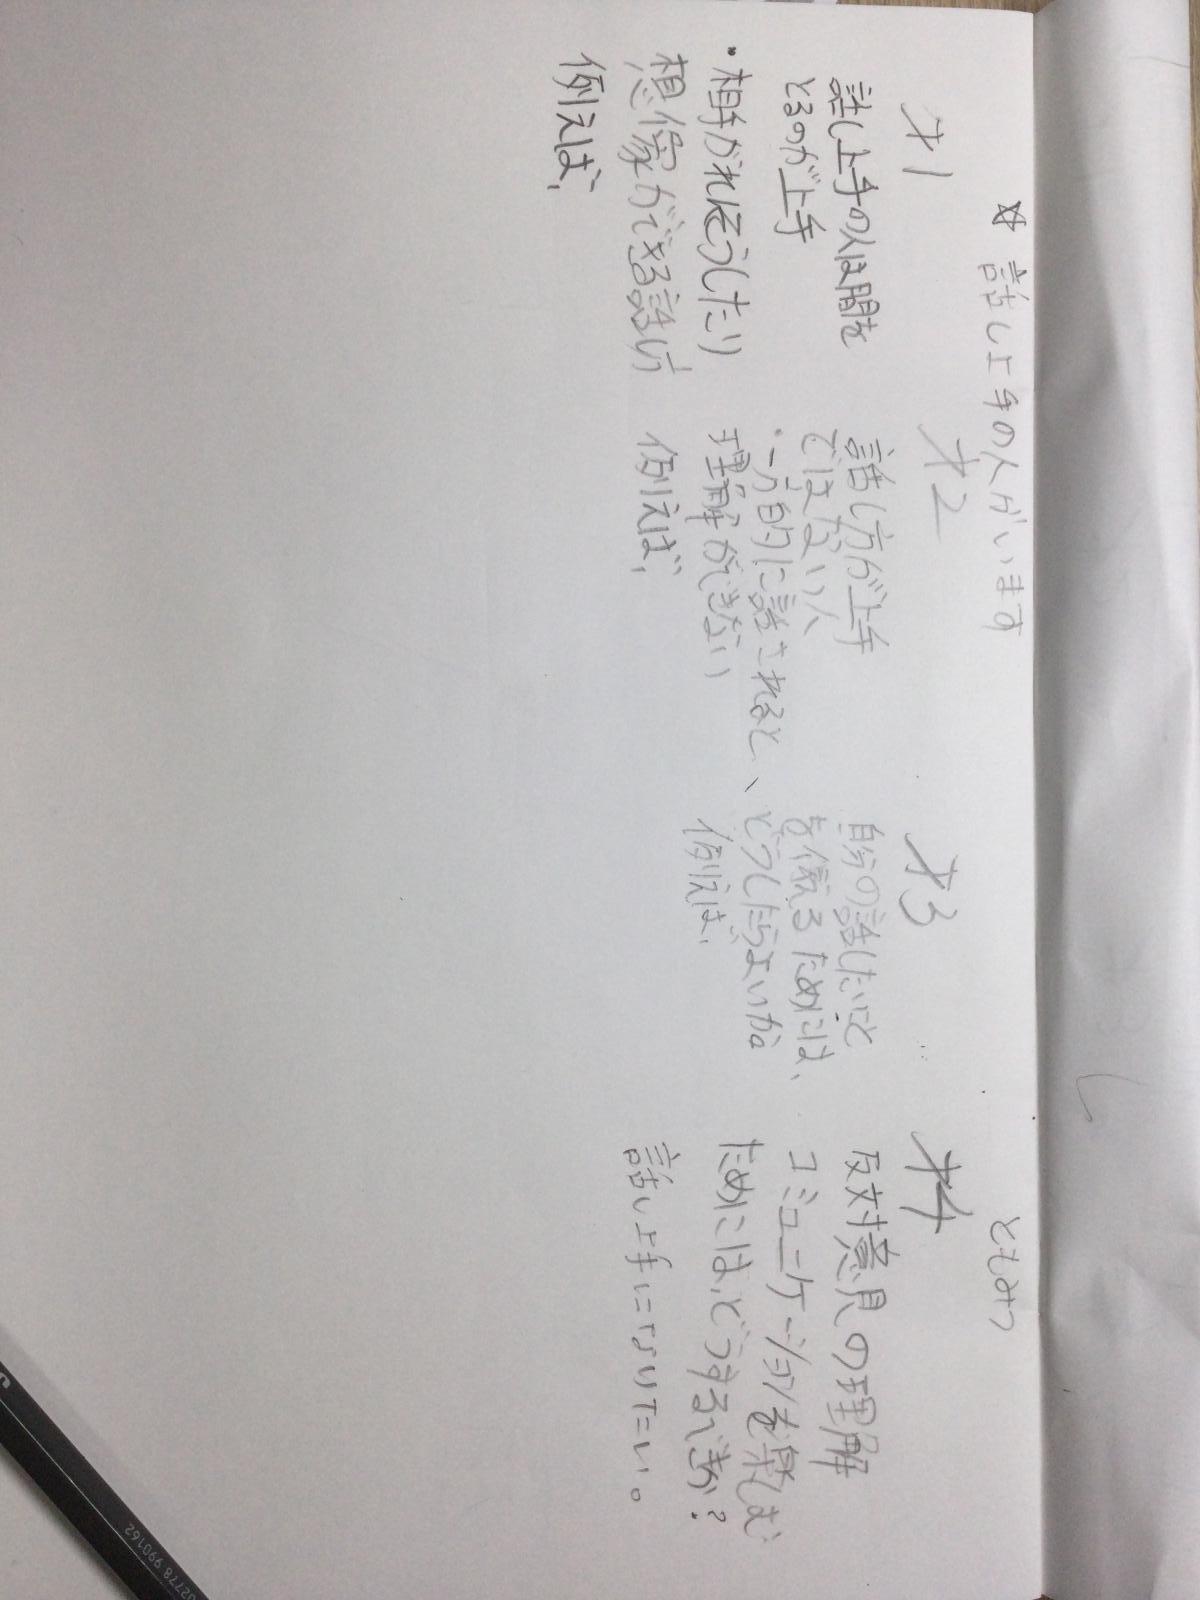 ☆ 話し上手の人がいます
ともみつ
才1
話し上手の人は間を
とるのが上手
・相手がれそうしたり
想像ができる話し方
例えば、
才2
話し方が上手
ではない人
・一方的に話されると、
理解ができない
例えば、
才3
自分の話したいこと
を伝えるためには、
どうしたらよいか。
例えば、
才4
反対意見の理解
コミュニケーションを楽しむ
ためには、どうするべきか?
話し上手になりたい。
02778 990162